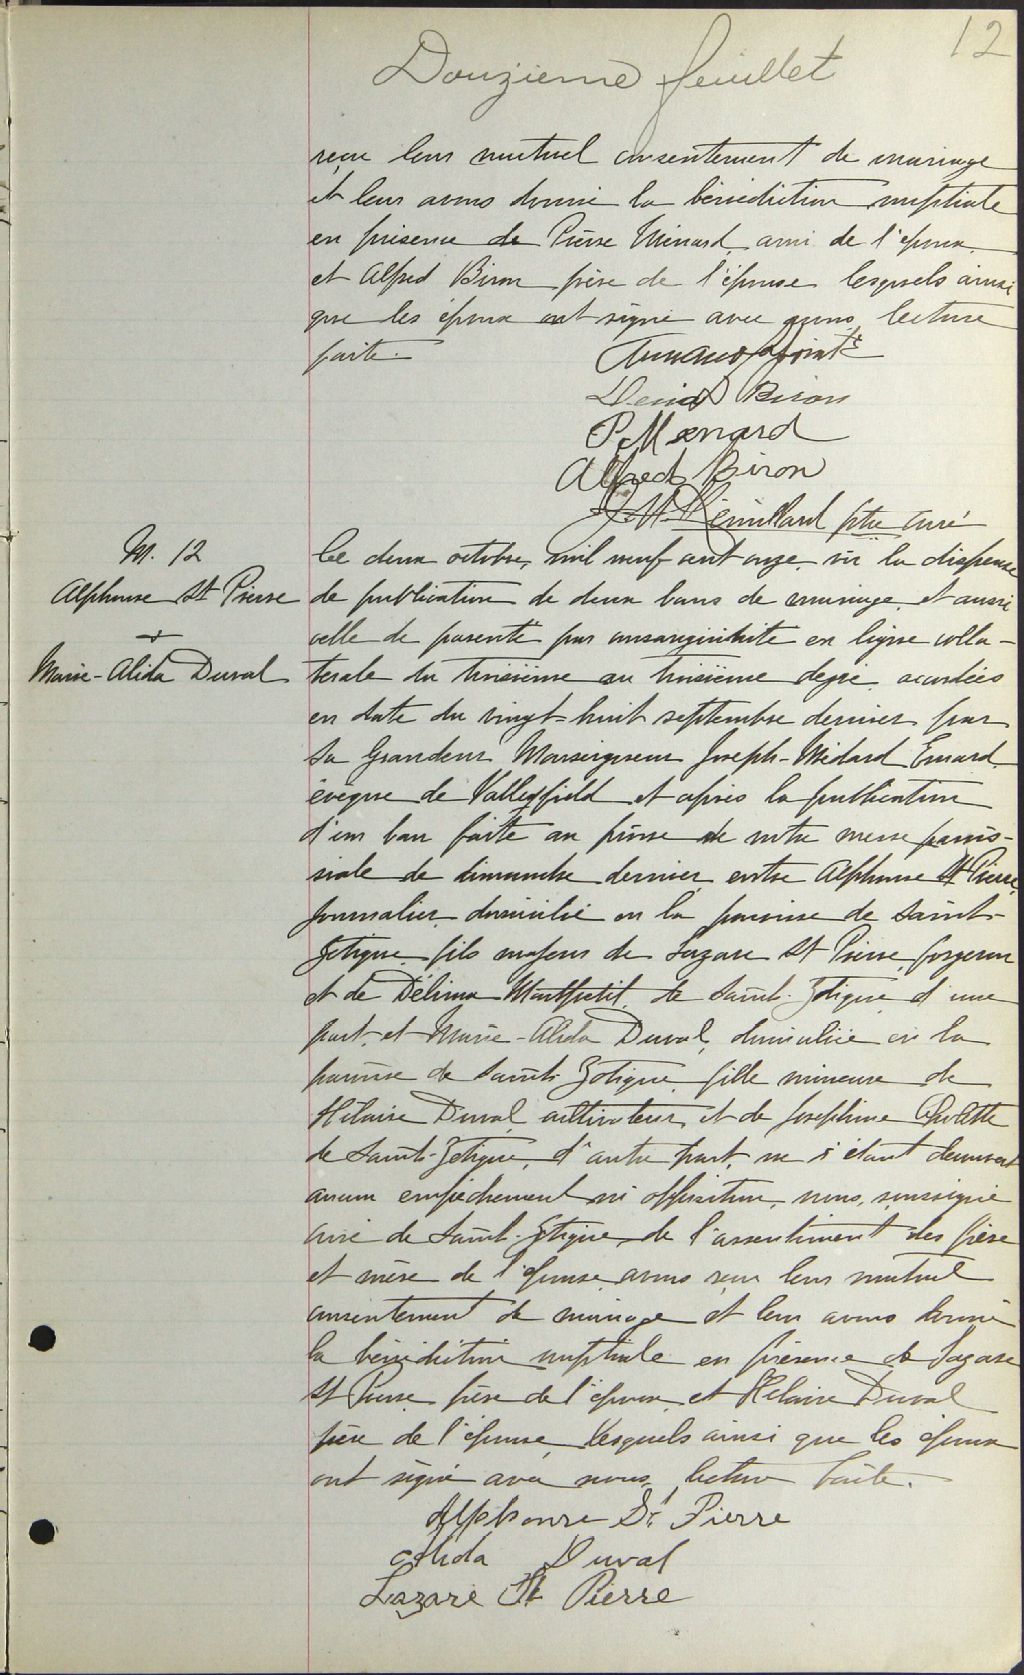 12
Douzieme feuillet
reçu leur mutuel consentement de mariage
et leur avons donné la bénédiction nuptiale
en présence de Pierre Ménard, ami de l'époux
et Alfred Biron père de l'épouse lesquels ainsi
que les époux ont signé avec nous, lecture
faite.
Denis Biron
P. Menard
Alfred Biron
ptre curé
M. 12
Alphonse St Pierre
+
Marie-Alida Duval
Le deux octobre, mil neuf cent onze, vu la dispense
de publication de deux bans de mariage, et aussi
celle de parenté par consanguinité en ligne colla-
terale du troisième au troisième degré, accordées
en date du vingt-huit septembre dernier par
Sa Grandeur Monseigneur Joseph-Médard Emard,
évêque de Valleyfield et après la publication
d'un ban faite au prône de notre messe parois-
siale de dimanche dernier, entre Alphonse St Pierre,
journalier, domicilié en la paroisse de Saint-
Zotique, fils majeur de Lazare St Pierre, forgeron
et de Délima Montpetit, de Saint-Zotique d'une
part, et Marie-Alida Duval, domiciliée en la
paroisse de Saint-Zotique, fille mineure de
Hilaire Duval, cultivateur, et de Josephine
de Saint-Zotique, d'autre part, ne s'étant découvert
aucun empêchement ni opposition, nous, soussigné
curé de Saint-Zotique, de l'assentiment des père
et mère de l'épouse avons reçu leur mutuel
consentement de mariage et leur avons donné
la bénédiction nuptiale en présence de Lazare
St Pierre, père de l'époux, et Hilaire Duval
père de l'épouse, lesquels ainsi que les époux
ont signé avec nous, lecture faite.
Alphonse St Pierre
Alida Duval
Lazare St Pierre